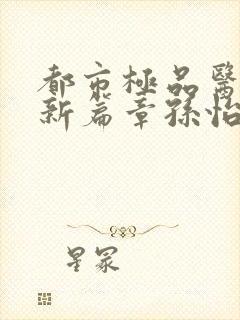 都市極品醫
新篇章孫怡
星冢